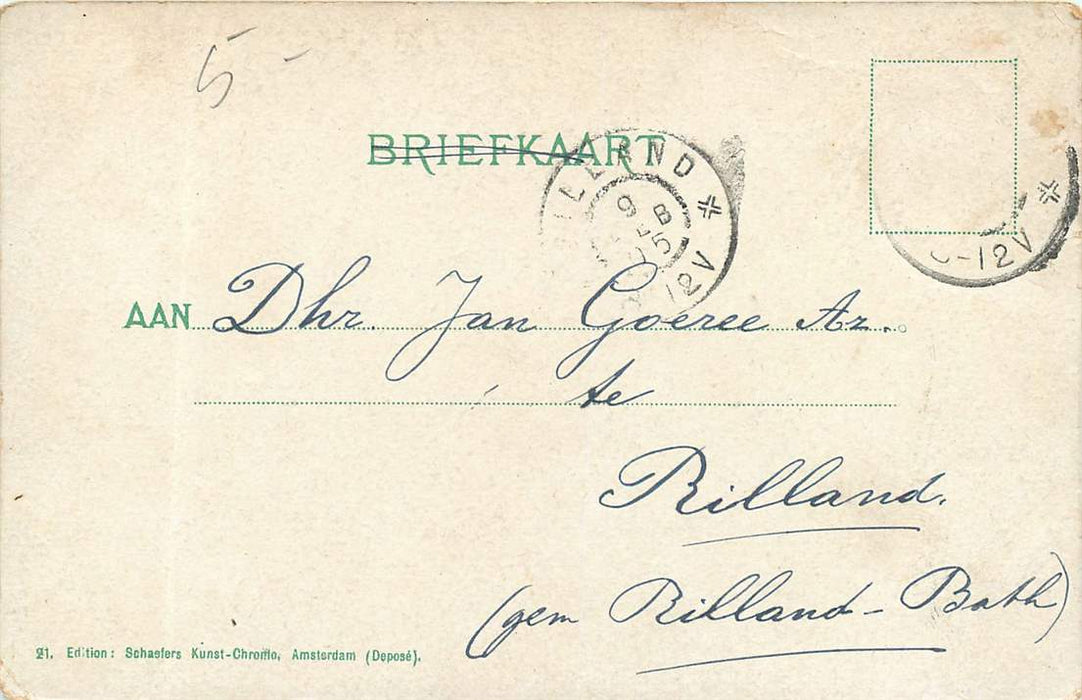 5-
BRIEFKAART
RILLAND
9 FEB 05
12V
-12V
AAN Dhr. Jan Goeree Az.
te
Rilland.
(gem Rilland-Bath)
21. Edition: Schaefers Kunst-Chromo, Amsterdam (Deposé).